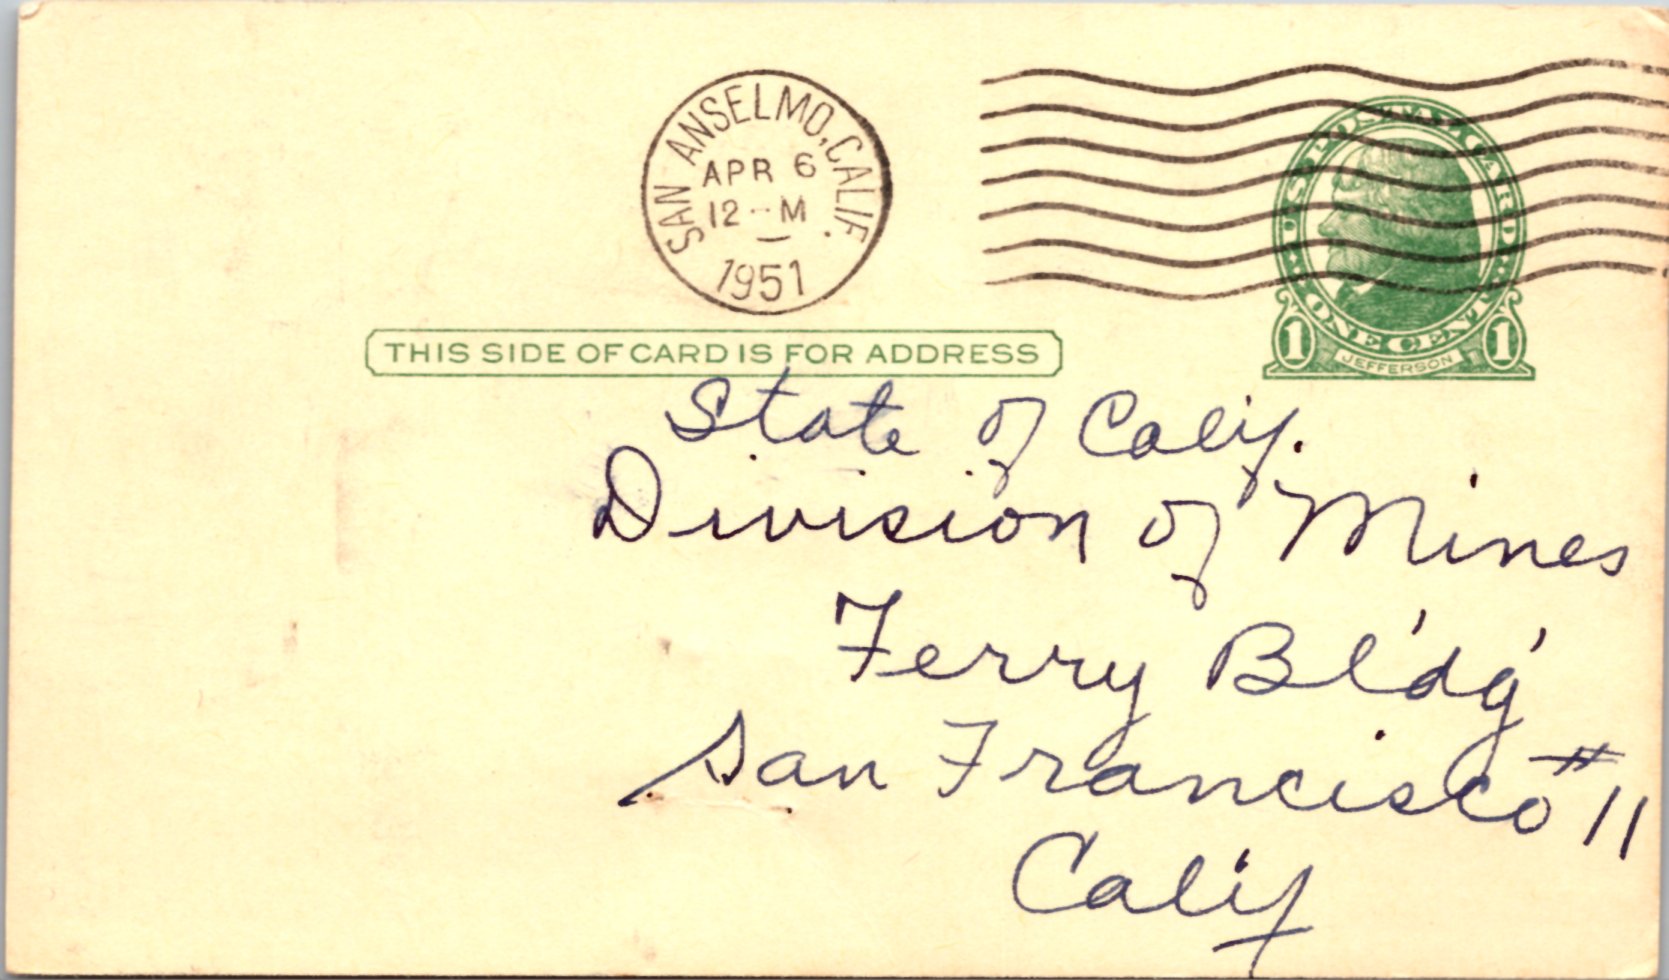 SAN ANSELMO, CALIF.
APR 6
12 - M
1951
U.S. POSTAL CARD
ONE CENT
1 JEFFERSON 1
THIS SIDE OF CARD IS FOR ADDRESS
State of Calif.
Division of Mines
Ferry Bl'dg'
San Francisco #11
Calif